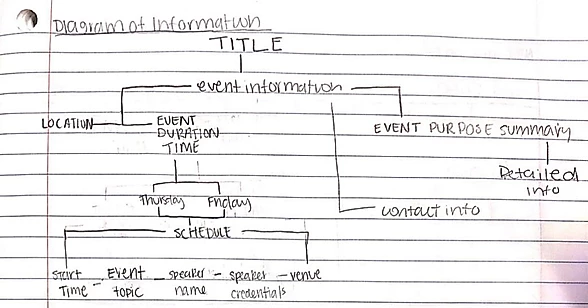 Diagram of Information
TITLE
event information
LOCATION
EVENT
DURATION
TIME
EVENT PURPOSE summary
Detailed
info
Thursday
Friday
contact info
SCHEDULE
start
Time
Event
topic
speaker
name
speaker
credentials
venue